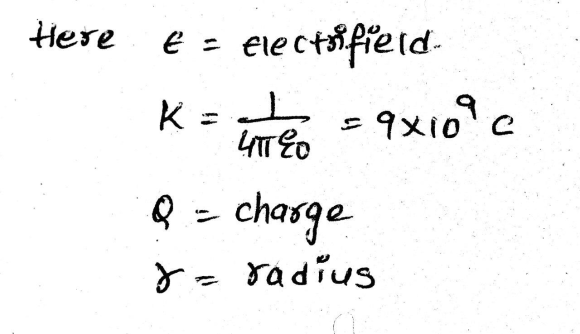 Here E = Electrifield.
K = 1/4πε0 = 9×10^9 C
Q = charge
r = radius